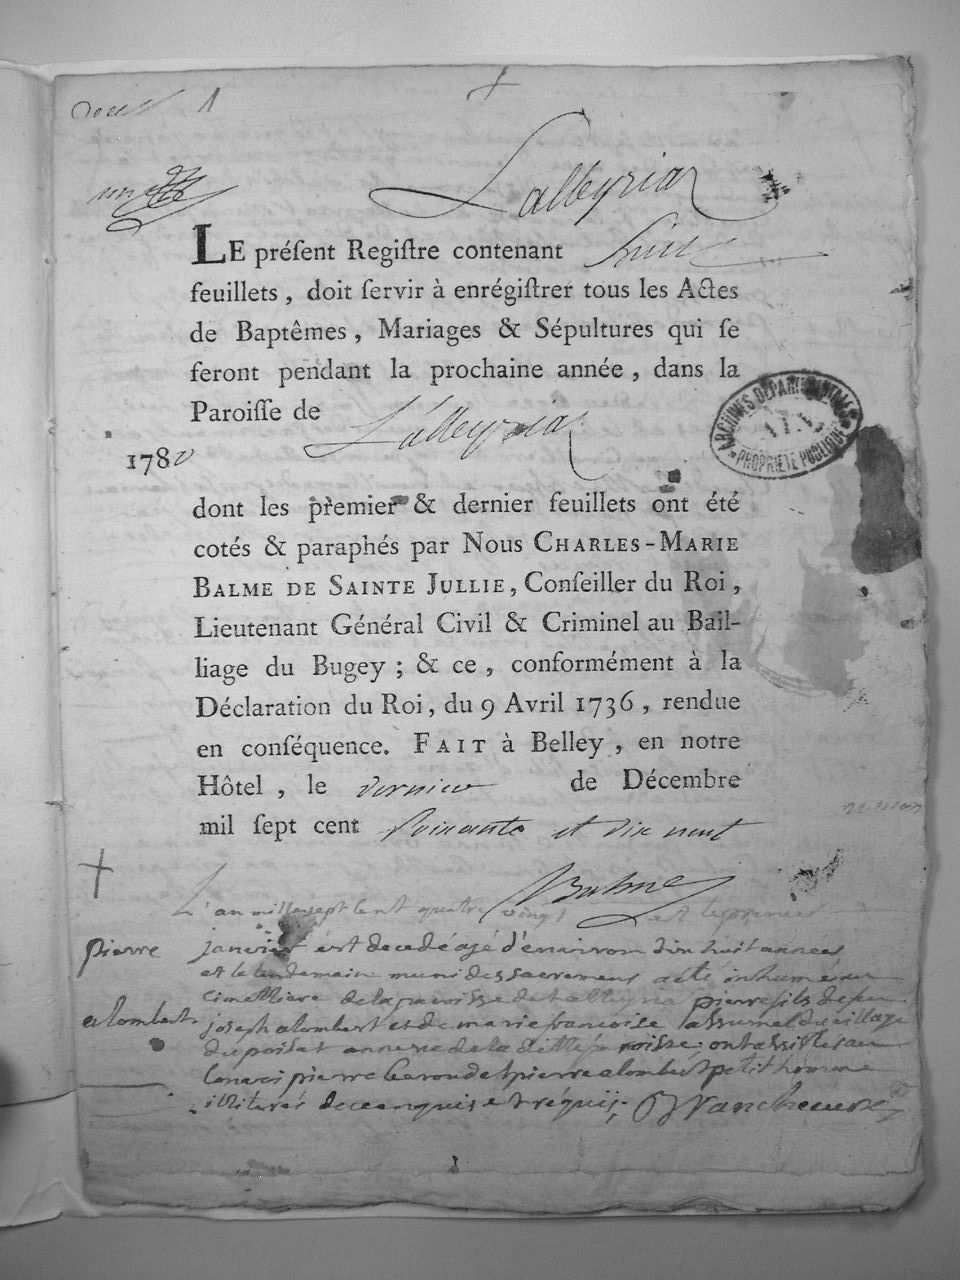 1
Lalleyriat
LE préſent Regiſtre contenant huit
feuillets, doit ſervir à enrégiſtrer tous les Actes
de Baptêmes, Mariages & Sépultures qui ſe
feront pendant la prochaine année, dans la
Paroiſſe de Lalleyriat
1780
ARCHIVES DÉPARTEMENTALES
AIN
PROPRIÉTÉ PUBLIQUE
dont les premier & dernier feuillets ont été
cotés & paraphés par Nous CHARLES-MARIE
BALME DE SAINTE JULLIE, Conſeiller du Roi,
Lieutenant Général Civil & Criminel au Bail-
liage du Bugey ; & ce, conformément à la
Déclaration du Roi, du 9 Avril 1736, rendue
en conſéquence. FAIT à Belley, en notre
Hôtel, le dernier de Décembre
mil ſept cent soixante et dix neuf
Balme
L'an mille sept cent quatre vingt et le premier
pierre
janvier est decedé agé d'environ dix huit années
et le lendemain muni des sacremens a été inhumé au
cimettiere de la paroisse de Lalleyria pierre fils de feu
alombert
joseph alombert et de marie francoise du village
du poisat annexe de la ditte paroisse ont assisté au
convoi pierre et pierre alombert petit homme
illiterés de ce enquis et requis,